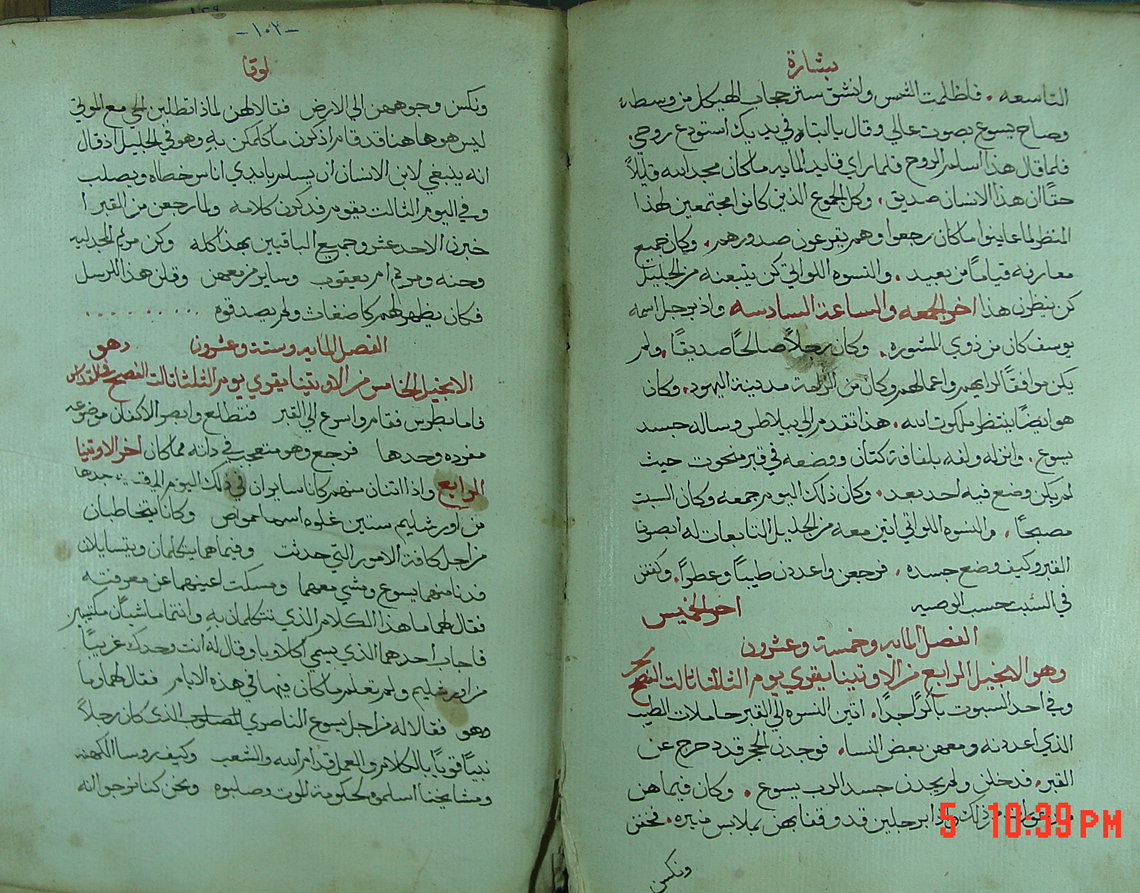 بشارة
التاسعه . فاظلمت الشمس وانشق ستر حجاب الهيكل من وسطه
وصاح يسوع بصوت عالي وقال يا ابتاه في يديك استودع روحي .
فلما قال هذا اسلم الروح فلما راي قايد المايه ما كان مجد الله قليلاً
حقاً ان هذا الانسان صديق . وكل الجموع الذين كانوا مجتمعين لهذا
المنظر لما عاينوا ما كان رجعوا وهم يقرعون صدورهم . وكان جميع
معارفه قياماً من بعيد . والنسوه اللواتي كن يتبعنه من الجليل
كن ينظرن هذا اخر الجمعه والساعة السادسه واذ برجل اسمه
يوسف كان من ذوي المشوره . وكان رجلاً صالحاً صديقاً . ولم
يكن موافقاً لرايهم واعمالهم وكان من الرامة مدينة اليهود . وكان
هو ايضاً ينتظر ملكوت الله . هذا تقدم الي بيلاطس وساله جسد
يسوع . وانزله ولفه بلفافة كتان ووضعه في قبر منحوت حيث
لم يكن وضع فيه احد بعد . وكان ذلك اليوم جمعه وكان السبت
مصبحاً . والنسوه اللواتي اتين معه من الجليل التابعات له ابصرن
القبر وكيف وضع جسده . فرجعن واعددن طيباً وعطراً . وكففن
في السبت حسب الوصيه اخر الخميس
الفصل المايه وخمسة وعشرون
وهو الانجيل الرابع من الاوتينا يقري يوم الثلثا ثالث الفصح
وفي احد السبوت باكراً جداً . اتين النسوه الي القبر حاملات الطيب
الذي اعددنه ومعهن بعض النسا . فوجدن الحجر قد دحرج عن
القبر . فدخلن ولم يجدن جسد الرب يسوع . وكان فيما هن
من ذلك واذا برجلين قد وقفا بهن بملابس منيره . فخفن
ونكسن
5 10:39 PM
-١٠٢-
لوقا
ونكسن وجوههن الي الارض فقالا لهن لماذا تطلبن الحي مع الموتي
ليس هو هاهنا قد قام اذكرن ما كلمكن به وهو في الجليل اذ قال
انه ينبغي لابن الانسان ان يسلم بايدي اناس خطاه ويصلب
وفي اليوم الثالث يقوم فذكرن كلامه ولما رجعن من القبر ا
خبرن الاحد عشر وجميع الباقيين بهذا كله وكن مريم المجدليه
وحنه ومريم ام يعقوب وساير من معهن وقلن هذا للرسل
فكان يظهر لهم كاضغاث ولم يصدقوه
الفصل المايه وستة وعشرون وهو
الانجيل الخامس من الاوتينا يقري يوم الثلثا ثالث الفصح
فاما بطرس فقام واسرع الي القبر فتطلع وابصر الاكفان موضوعه
مفرده وحدها فرجع وهو متعجب في ذاته مما كان اخر الاوتينا
الرابع واذا اثنان منهم كانا سايران في ذلك اليوم الي قريه
من اورشليم ستين غلوه اسمها عمواص وكانا يتخاطبان
من اجل كافة الامور التي حدثت وفيما هما يتكلمان ويتسايلان
قدنا منهما يسوع ومشي معهما ومسكت اعينهما عن معرفته
فقال لهما ما هذا الكلام الذي تتكلمان به وانتما ماشيان مكتيبين
فاجاب احدهما الذي يسمي اكلاوبا وقال له انت وحدك غريباً
من اورشليم ولم تعلم ما كان فيها في هذه الايام فقال لهما وما
وهو فقالا له من اجل يسوع الناصري المصلوب الذي كان رجلاً
نبياً قوياً بالكلام والعمل قدام الله والشعب وكيف روسا الكهنه
ومشايخنا اسلموه لحكومة الموت وصلبوه ونحن كنا نرجوا انه